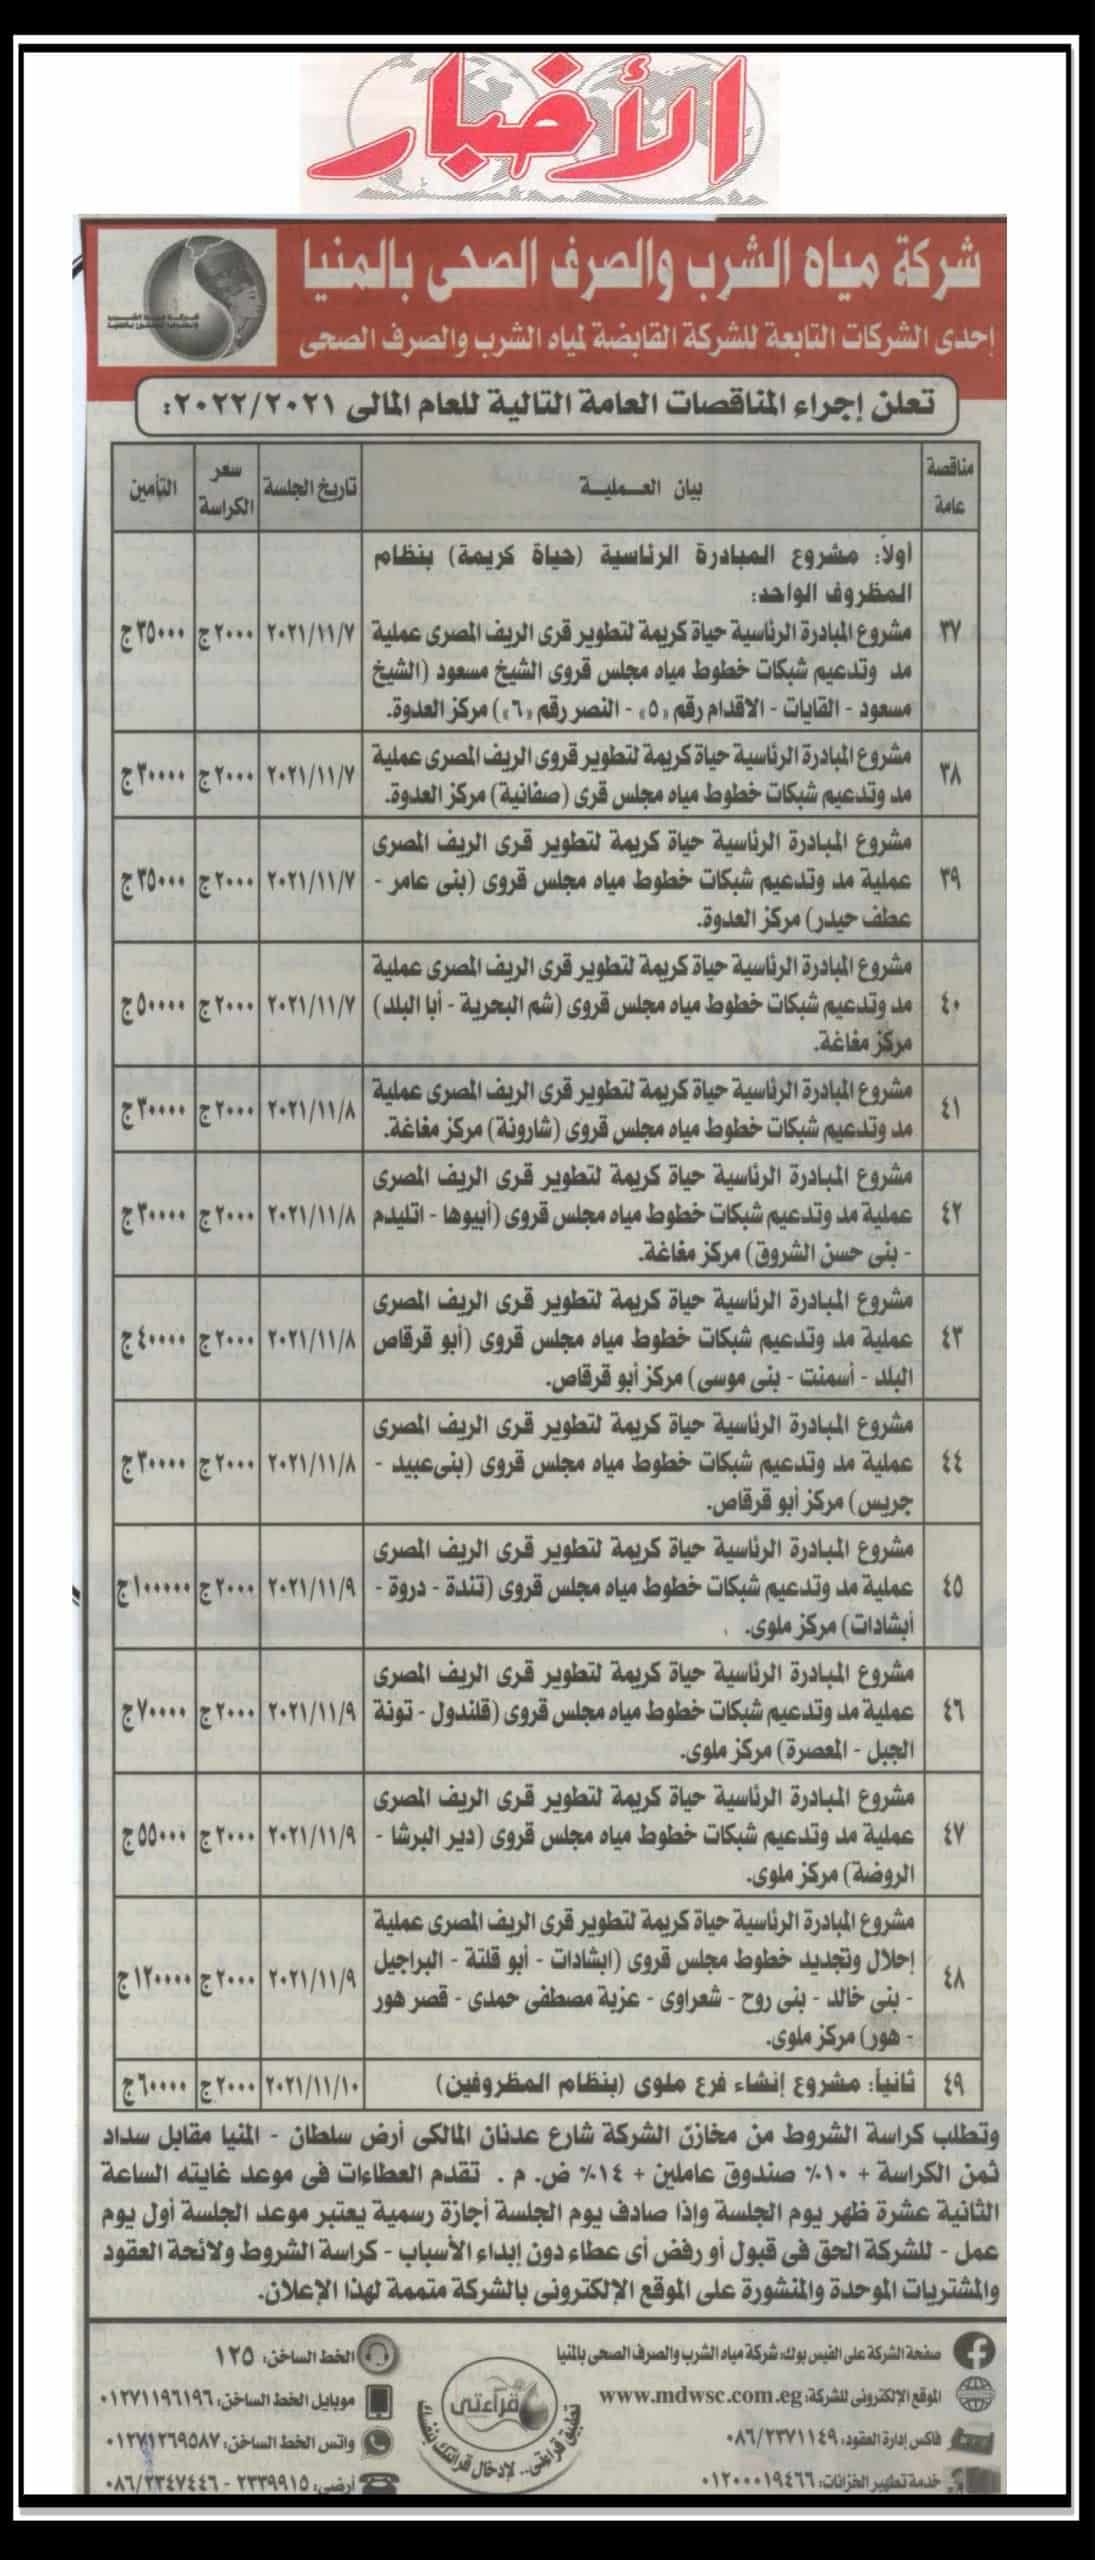 الأخبار
شركة مياه الشرب والصرف الصحى بالمنيا
إحدى الشركات التابعة للشركة القابضة لمياه الشرب والصرف الصحى
تعلن إجراء المناقصات العامة التالية للعام المالى ٢٠٢٢/٢٠٢١:
مناقصة عامة | بيان العملية | تاريخ الجلسة | سعر الكراسة | التأمين
أولاً: مشروع المبادرة الرئاسية (حياة كريمة) بنظام
المظروف الواحد:
٣٧ | مشروع المبادرة الرئاسية حياة كريمة لتطوير قرى الريف المصرى عملية | ٢٠٢١/١١/٧ | ٢٠٠٠ ج | ٣٥٠٠٠ ج
مد وتدعيم شبكات خطوط مياه مجلس قروى الشيخ مسعود (الشيخ
مسعود - القايات - الاقدام رقم «٥» - النصر رقم «٦») مركز العدوة.
٣٨ | مشروع المبادرة الرئاسية حياة كريمة لتطوير قروى الريف المصرى عملية | ٢٠٢١/١١/٧ | ٢٠٠٠ ج | ٣٠٠٠٠ ج
مد وتدعيم شبكات خطوط مياه مجلس قرى (صفانية) مركز العدوة.
٣٩ | مشروع المبادرة الرئاسية حياة كريمة لتطوير قرى الريف المصرى | ٢٠٢١/١١/٧ | ٢٠٠٠ ج | ٣٥٠٠٠ ج
عملية مد وتدعيم شبكات خطوط مياه مجلس قروى (بنى عامر -
عطف حيدر) مركز العدوة.
٤٠ | مشروع المبادرة الرئاسية حياة كريمة لتطوير قرى الريف المصرى عملية | ٢٠٢١/١١/٧ | ٢٠٠٠ ج | ٥٠٠٠٠ ج
مد وتدعيم شبكات خطوط مياه مجلس قروى (شم البحرية - أبا البلد)
مركز مغاغة.
٤١ | مشروع المبادرة الرئاسية حياة كريمة لتطوير قرى الريف المصرى عملية | ٢٠٢١/١١/٨ | ٢٠٠٠ ج | ٣٠٠٠٠ ج
مد وتدعيم شبكات خطوط مياه مجلس قروى (شارونة) مركز مغاغة.
٤٢ | مشروع المبادرة الرئاسية حياة كريمة لتطوير قرى الريف المصرى | ٢٠٢١/١١/٨ | ٢٠٠٠ ج | ٣٠٠٠٠ ج
عملية مد وتدعيم شبكات خطوط مياه مجلس قروى (أبيوها - اتليدم
- بنى حسن الشروق) مركز مغاغة.
٤٣ | مشروع المبادرة الرئاسية حياة كريمة لتطوير قرى الريف المصرى | ٢٠٢١/١١/٨ | ٢٠٠٠ ج | ٤٠٠٠٠ ج
عملية مد وتدعيم شبكات خطوط مياه مجلس قروى (أبو قرقاص
البلد - أسمنت - بنى موسى) مركز أبو قرقاص.
٤٤ | مشروع المبادرة الرئاسية حياة كريمة لتطوير قرى الريف المصرى | ٢٠٢١/١١/٨ | ٢٠٠٠ ج | ٣٠٠٠٠ ج
عملية مد وتدعيم شبكات خطوط مياه مجلس قروى (بنى عبيد -
جريس) مركز أبو قرقاص.
٤٥ | مشروع المبادرة الرئاسية حياة كريمة لتطوير قرى الريف المصرى | ٢٠٢١/١١/٩ | ٢٠٠٠ ج | ١٠٠٠٠٠ ج
عملية مد وتدعيم شبكات خطوط مياه مجلس قروى (تندة - دروة -
أبشادات) مركز ملوى.
٤٦ | مشروع المبادرة الرئاسية حياة كريمة لتطوير قرى الريف المصرى | ٢٠٢١/١١/٩ | ٢٠٠٠ ج | ٧٠٠٠٠ ج
عملية مد وتدعيم شبكات خطوط مياه مجلس قروى (قلندول - تونة
الجبل - المعصرة) مركز ملوى.
٤٧ | مشروع المبادرة الرئاسية حياة كريمة لتطوير قرى الريف المصرى | ٢٠٢١/١١/٩ | ٢٠٠٠ ج | ٥٥٠٠٠ ج
عملية مد وتدعيم شبكات خطوط مياه مجلس قروى (دير البرشا -
الروضة) مركز ملوى.
٤٨ | مشروع المبادرة الرئاسية حياة كريمة لتطوير قرى الريف المصرى عملية | ٢٠٢١/١١/٩ | ٢٠٠٠ ج | ١٢٠٠٠٠ ج
إحلال وتجديد خطوط مجلس قروى (ابشادات - أبو قلتة - البراجيل
- بنى خالد - بنى روح - شعراوى - عزبة مصطفى حمدى - قصر هور
- هور) مركز ملوى.
٤٩ | ثانياً: مشروع إنشاء فرع ملوى (بنظام المظروفين) | ٢٠٢١/١١/١٠ | ٢٠٠٠ ج | ٦٠٠٠٠ ج
وتطلب كراسة الشروط من مخازن الشركة شارع عدنان المالكى أرض سلطان - المنيا مقابل سداد
ثمن الكراسة + ١٠٪ صندوق عاملين + ١٤٪ ض. م . تقدم العطاءات فى موعد غايته الساعة
الثانية عشرة ظهر يوم الجلسة وإذا صادف يوم الجلسة أجازة رسمية يعتبر موعد الجلسة أول يوم
عمل - للشركة الحق فى قبول أو رفض أى عطاء دون إبداء الأسباب - كراسة الشروط ولائحة العقود
والمشتريات الموحدة والمنشورة على الموقع الإلكترونى بالشركة متممة لهذا الإعلان.
صفحة الشركة على الفيس بوك: شركة مياه الشرب والصرف الصحى بالمنيا
الموقع الإلكترونى للشركة: www.mdwsc.com.eg
فاكس إدارة العقود: ٠٨٦/٢٣٧١١٤٩
خدمة تطهير الخزانات: ٠١٢٠٠٠١٩٤٦٦
قراءتى
تطبيق قراءتى.. لإدخال قراءتك بنفسك
الخط الساخن: ١٢٥
موبايل الخط الساخن: ٠١٢٧١١٩٦١٩٦
واتس الخط الساخن: ٠١٢٧١٢٦٩٥٨٧
أرضى: ٢٣٣٩٩١٥ - ٠٨٦/٢٣٤٧٤٤٦